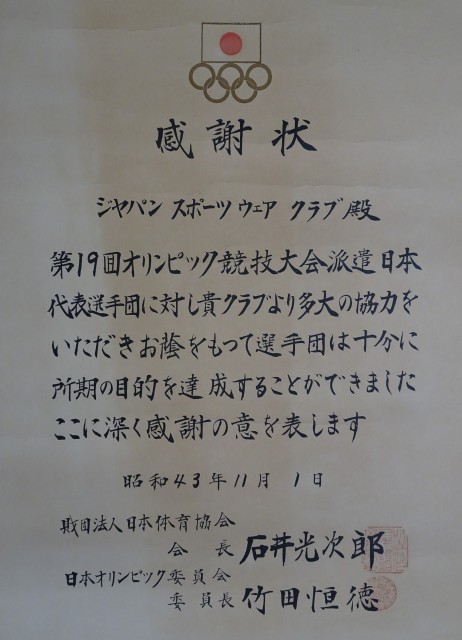 感謝状
ジャパン スポーツ ウェア クラブ殿
第19回オリンピック競技大会派遣日本
代表選手団に対し貴クラブより多大の協力を
いただきお蔭をもつて選手団は十分に
所期の目的を達成することができました
ここに深く感謝の意を表します
昭和43年11月 1日
財団法人日本体育協会
会 長 石井光次郎
日本オリンピック委員会
委員長 竹田恒徳